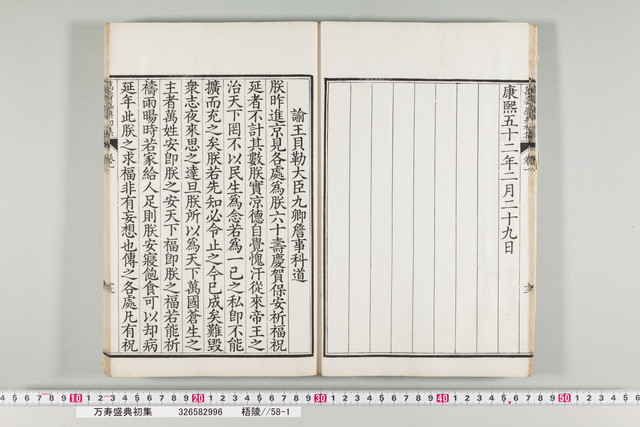 康熙五十二年二月二十九日
諭王貝勒大臣九卿詹事科道
朕昨進京見各處為朕六十壽慶賀保安祈福祝
延者不計其數朕實涼德自覺愧汗從來帝王之
治天下罔不以民生為念若為一己之私卽不能
擴而充之矣朕若先知必令止之今已成矣難毀
衆志夜來思之達旦朕所以為天下萬國蒼生之
主者萬姓安卽朕之安天下福卽朕之福若能祈
禱雨暘時若家給人足則朕安寢飽食可以却病
延年此朕之求福非有妄想也傳之各處凡有祝
10 20 30 40 50
万寿盛典初集 326582996 梧陵//58-1